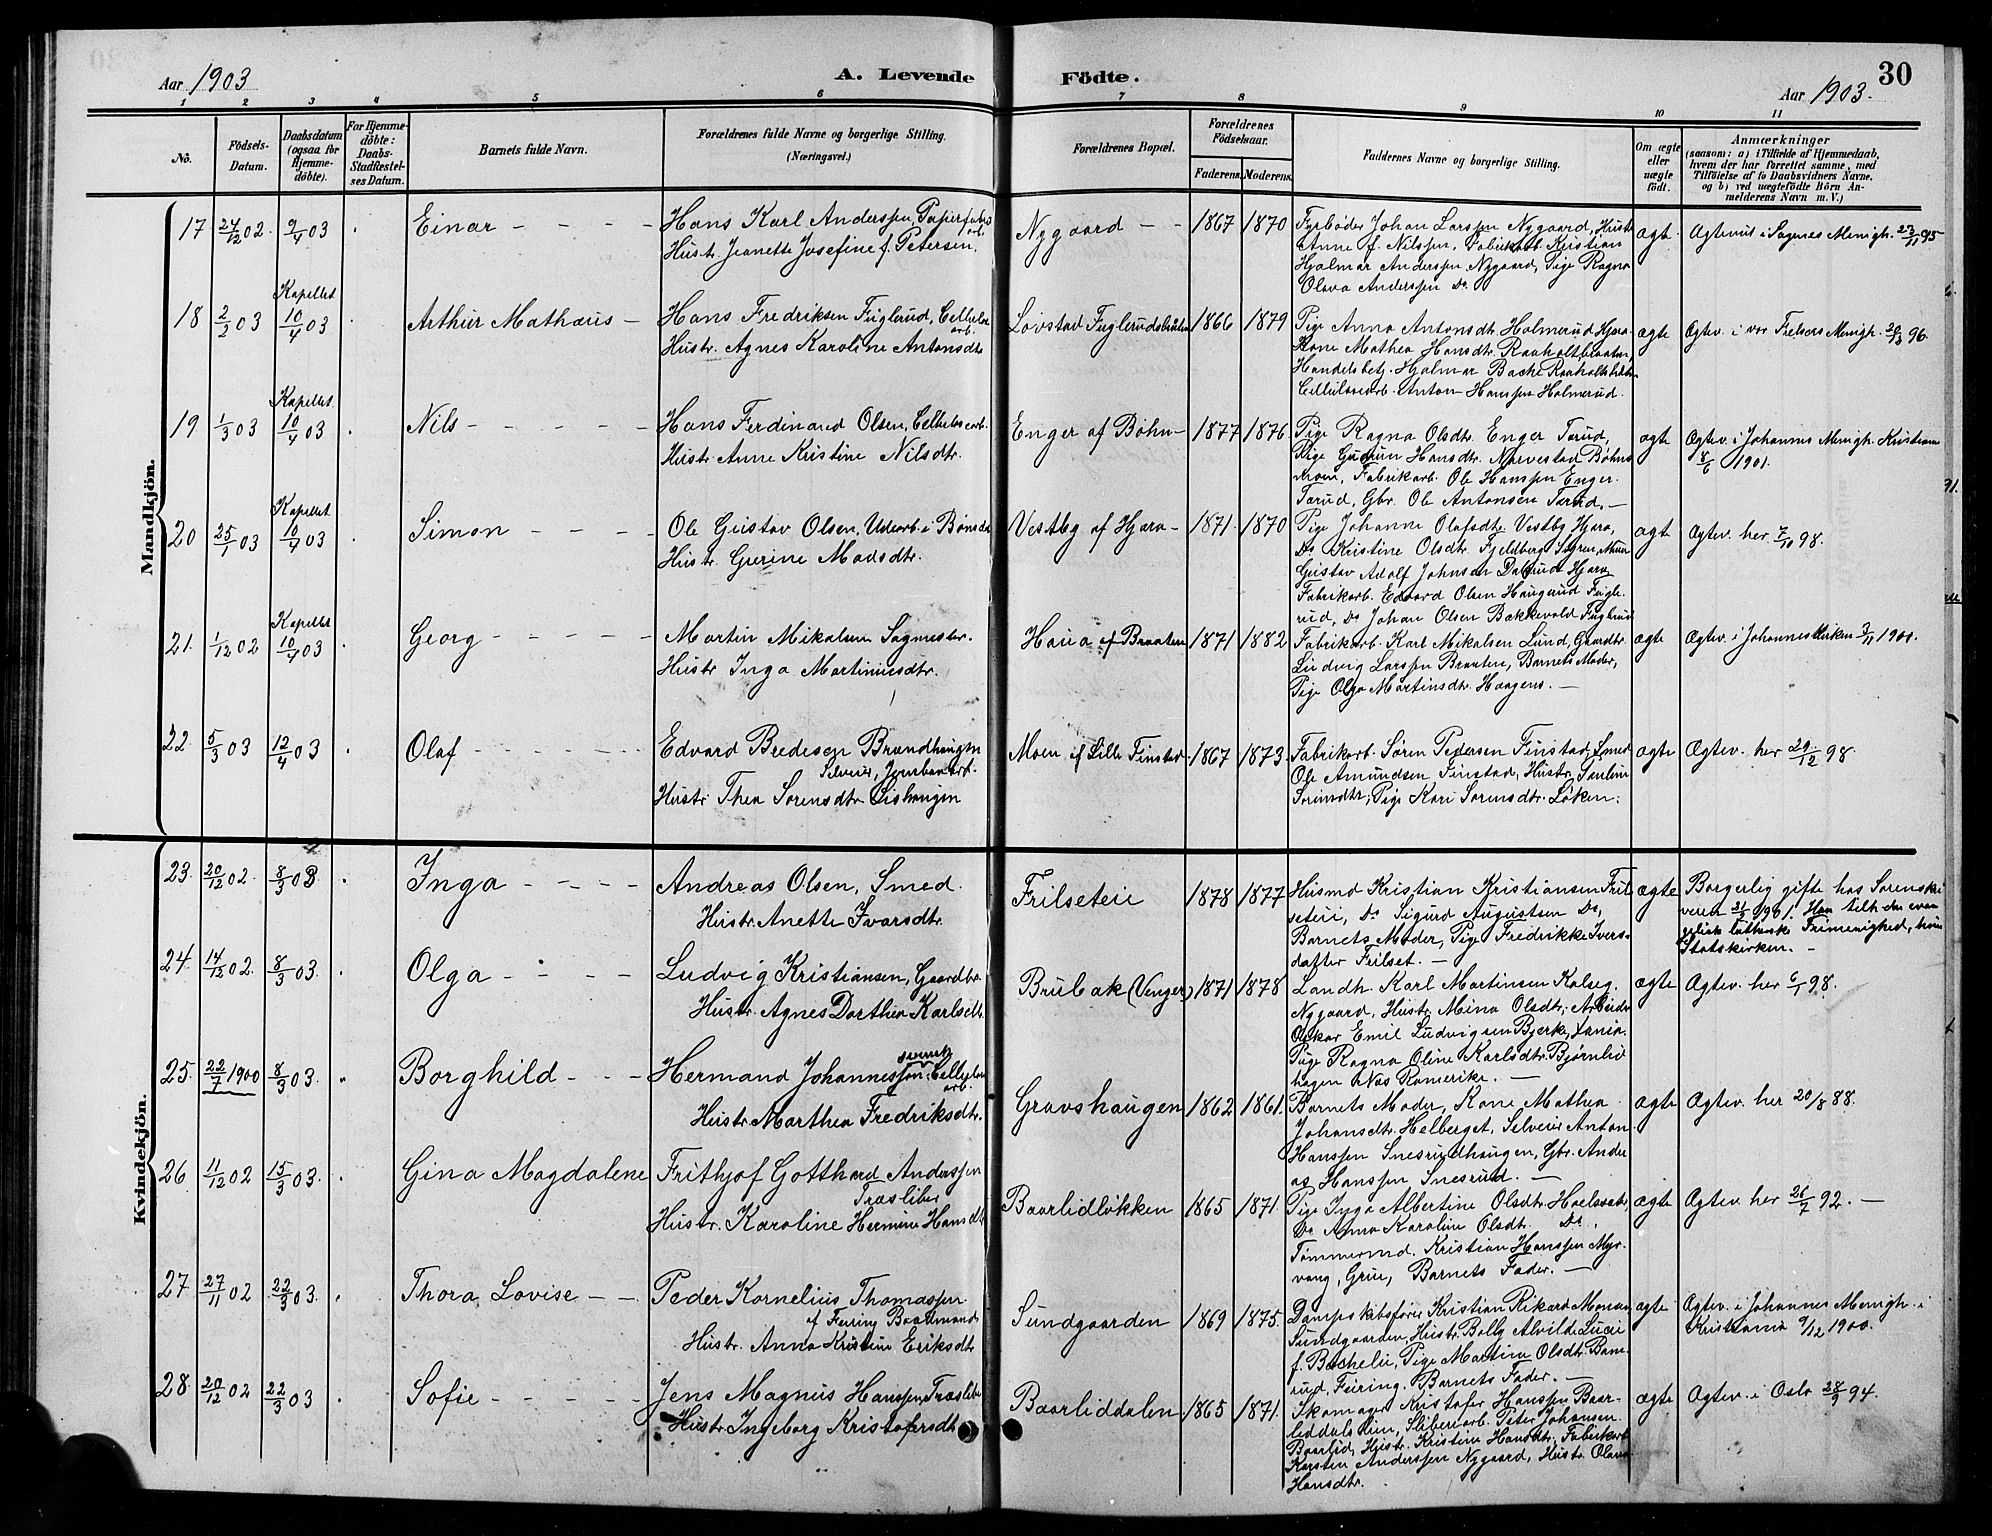 Aar 1903
A. Levende Födte.
Aar 1903.
30
1 2 3 4 5 6 7 8 9 10 11
Nô.
Födsels-Datum.
Daabsdatum (ogsaa for Hjemme-döbte).
For Hjemme-döbte: Daabs-Stadfæstel-ses Datum.
Barnets fulde Navn.
Forældrenes fulde Navne og borgerlige Stilling.
(Næringsvei.)
Forældrenes Bopæl.
Forældrenes Födselsaar.
Faderens. Moderens.
Faddernes Navne og borgerlige Stilling.
Om ægte eller uægte födt.
Anmærkninger
(saasom: a) i Tilfælde af Hjemmedaab,
hvem der har forrettet samme, med
Tilföielse af to Daabsvidners Navne,
og b) ved uægtefödte Börn An-
melderens Navn m. V.)
Mandkjön.
17 24/12 02. 9/4 03 Einar
Hans Karl Anderssen, Papirfabr.arb.
Hustr. Jeanette Josefine f. Petersen.
Nygaard 1867 1870
Fyrbøder Johan Larssen Nygaard, Hustr.
Anne f. Nilssen, Fabrikarb. Kristian
Hjalmar Anderssen Nygaard, Pige Ragna
Olava Anderssen Do.
ægte Ægteviet i Sagnes Menigh. 23/11 95
18 2/2 03 Kapellet 10/4 03 Arthur Mathæus
Hans Fredriksen Fuglerud, Cellulosearb.
Hustr. Agnes Karoline Antonsdtr.
Løvstad Fuglerudsbråten 1866 1879
Pige Anna Antonsdtr. Holmerud Hjera
Kone Mathea Hansdtr. Raaholtbraaten,
Handelsbetj. Hjalmar Bache Raaholtbråten
Cellulosearb. Anton Hanssen Holmerud.
ægte Ægtev. i vor Frelsers Menigh. 20/3 96.
19 1/3 03 Kapellet 10/4 03 Nils
Hans Ferdinand Olsen, Cellulosearb.
Hustr. Anne Kristine Nilsdtr.
Enger af Bøhn 1877 1876
Pige Ragna Olsdtr. Enger Torud,
Pige Gudrun Hansdtr. Norvestad Bøhns
moen, Fabrikarb. Ole Hanssen Enger
Torud, Gbr. Ole Antonsen Torud.
ægte Ægtev. i Johannes Menigh. Kristiania
8/6 1901.
20 25/1 03 Kapellet 10/4 03 Simon
Ole Gustav Olsen, Udearb. i Bønsda
Hustr. Gurine Madsdtr.
Vestby af Hjera 1871 1870
Pige Johanne Olafsdtr. Vestby Hjera,
Do Kristine Olsdtr. Fjeldberg
Gustav Adolf Johnsen Dalsrud Hjera
Fabrikarb. Edvard Olsen Haugerud Fugle-
rud, Do Johan Olsen Bækkevold Fuglerud
ægte Ægtev. her 7/10 98.
21. 1/12 02 Kapellet 10/4 03 Georg
Martin Mikalsen Sagmester.
Hustr. Inga Martiniusdtr.
Haua af Braaten 1871 1882
Fabrikarb. Karl Mikalsen Lund, Gaardbr.
Ludvig Larssen Braaten, Barnets Moder,
Pige Olga Martinsdtr. Haagens.
ægte Ægtev. i Johanneskirken 3/11 1900.
22. 5/3 03 12/4 03 Olaf
Edvard Bredesen Brandhaugen
Selveier, Jernbanearb.
Hustr. Thea Sørensdtr. Lishaugen
Moen af Lille Finstad 1867 1873
Fabrikarb. Søren Pedersen Finstad, Smed
Ole Amundsen Finstad, Hustr. Pauline
Sørensdtr., Pige Kari Sørensdtr. Løken.
ægte Ægtev. her 29/12 98.
Kvindekjön.
23. 20/12 02. 8/3 03. Inga
Andreas Olsen, Smed.
Hustr. Anette Ivarsdtr.
Frilseteie 1878 1877
Husmd Kristian Kristiansen Fril-
seteie, Do Sigurd Augustsen Do,
Barnets Moder, Pige Fredrikke Ivers-
datter Frilset.
ægte Borgerlig gifte hos Sorenskri
veren 21/2 1901. Han tilh. den evan
gelisk lutherske Frimenighed, hun
Statskirken.
24. 14/12 02. 8/3 03. Olga
Ludvig Kristiansen, Gaardbr.
Hustr. Agnes Dorthea Karlsdtr.
Brubak (Venger) 1871 1878
Landh. Karl Martinsen Kolseg.
Nygaard, Hustr. Mina Olsdtr., Arbeider
Oskar Emil Ludvigsen Bjerke, Xania.
Pige Ragna Oline Karlsdtr. Bjørnlie
hagen Næs Romerike.
ægte Ægtev. her 6/1 98.
25. 22/7 1900 8/3 03. Borghild
Hermand Johannessen, svensk, Cellulosearb.
Hustr. Marthea Fredriksdtr.
Gravshaugen 1862 1861.
Barnets Moder, Kone Mathea
Johansdtr. Helberget, Selveier Anton
Hanssen Snesrudhaugen, Gbr. Andre
as Hanssen Snesrud.
ægte Ægtev. her 20/8 88.
26 11/12 02 15/3 03. Gina Magdalene
Frithjof Gotthard Anderssen
Træsliber
Hustr. Karoline Hermine Hansdtr.
Baarlidløkken 1865 1871.
Pige Inga Albertine Olsdtr. Hoelsæter,
Do Anna Karoline Olsdtr. Do,
Tømmermd. Kristian Hanssen Myr-
vang, Grue, Barnets Fader.
ægte Ægtev. her 26/7 92.
27 27/11 02 22/3 03. Thora Lovise
Peder Kornelius Thomassen
af Feiring Baadmand
Hustr. Anna Kristine Eriksdtr.
Sundgaarden 1869 1875.
Dampskibsfører Kristian Rikard Monsen
Sundgaarden, Hustr. Bolly Alvilde Lucie
f. Bachelie, Pige Martine Olsdtr. Bane-
rud, Feiring. Barnets Fader.
ægte Ægtev. i Johannes Menigh. i
Kristiania 9/12 1900.
28. 20/12 02 22/3 03 Sofie
Jens Magnus Hanssen, Træsliber
Hustr. Ingeborg Kristofersdtr.
Baarliddalen 1865 1871.
Skomager Kristofer Hanssen Baar-
liddalseien, Sliberiarb. Peter Johansen
Baarlid, Hustr. Kristine Hansdtr., Fabrikarb.
Karsten Anderssen Nygaard, Hustr. Olava
Hansdtr.
ægte Ægtev. i Oslo 28/9 94.